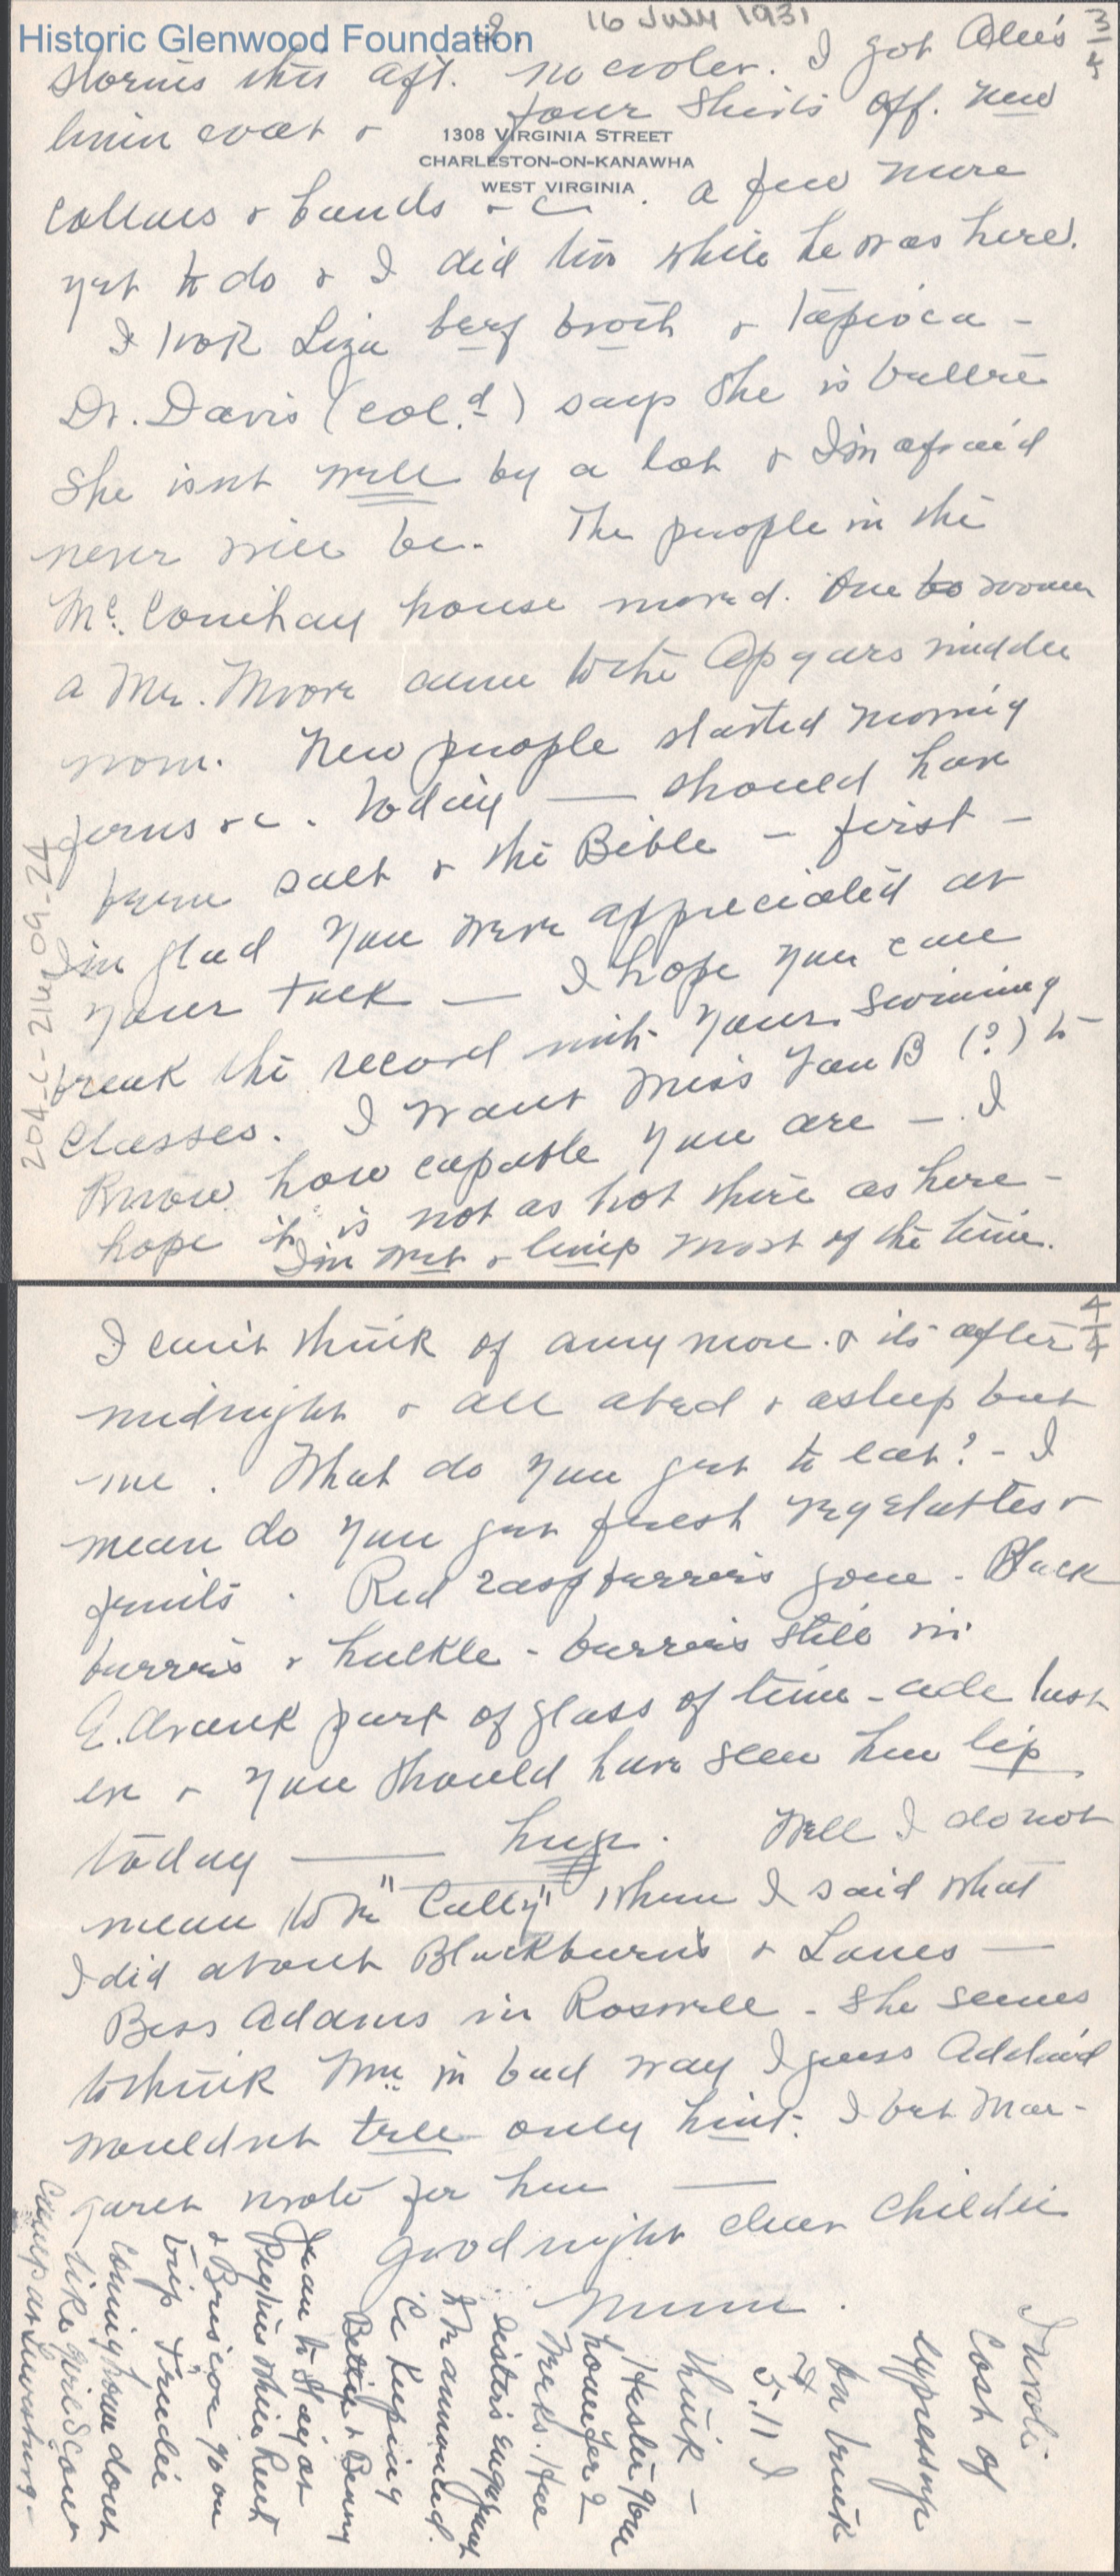 Historic Glenwood Foundation
2.
16 July 1931
3/4
storms this aft. no cooler. I got Alec's
linin coat & four shirts off. New
1308 VIRGINIA STREET
CHARLESTON-ON-KANAWHA
WEST VIRGINIA
collars & bands &c. a few more
yet to do & I did two while he was here.
I took Liza beef broth & Tapioca -
Dr. Davis (col.d) says she is better
She isnt well by a lot & I'm afraid
never will be. The people in the
McConihay house moved. One to room
a Mr. Moore came to the Apgars middle
room. New people started moving
ferns &c. today — should have
been salt & the Bible - first -
I'm glad you were appreciated at
your talk — I hope you can
break the record with your swimming
classes. I want Miss Van B (?) to
know how capable you are —. I
hope it is not as hot there as here -
I'm wet & limp most of the time.
204-C-21m09-24
4/4
I can't think of any more. & its after
midnight & all abed & asleep but
me. What do you get to eat? - I
mean do you get fresh vegetables &
fruits. Red raspberries gone - Black
berries & huckle-berries still in
E. drank part of glass of lime-ade last
ev & you should have seen her lip
today — huge. Well I do not
mean to be "Catty" when I said what
I did about Blackburns & Lanes —
Bess Adams in Roswell - She seems
to think Mr. in bad way I guess Addie'd
wouldnt tell only hint. I bet Mar-
garet wrote for her —
good night dear childie
Mum.
I wrote
Cost of
expressage
on trunk
$5.11 I
think -
Hester gone
home for 2
weeks. Her
sister's engagement
to be announced.
C keeping
Bettie & Benny
Jean to stay at
Peytons while Rent
& Briscoe go on
trip. Trudie
coming home dont
like Girl Scout
Camp at Lewisburg -